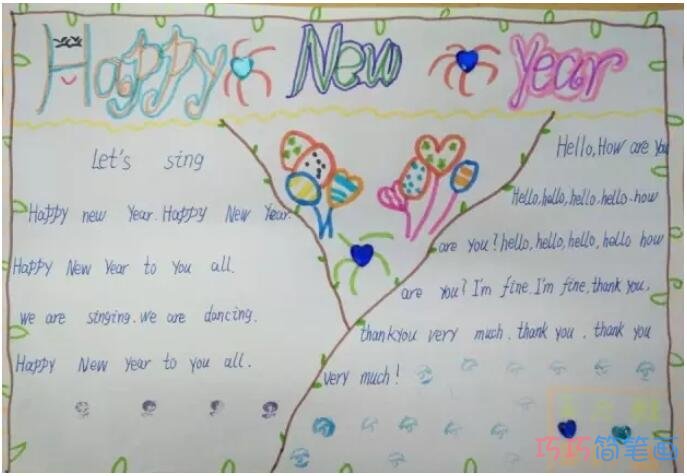 Happy New Year
Let's sing
Happy new Year. Happy New Year.
Happy New Year to you all.
we are singing. we are dancing.
Happy New Year to you all.
Hello, How are you
Hello, hello, hello. hello. how
are you? hello, hello, hello, hello how
are you? I'm fine. I'm fine, thank you,
thankyou very much. thank you. thank you
very much!
巧巧简笔画